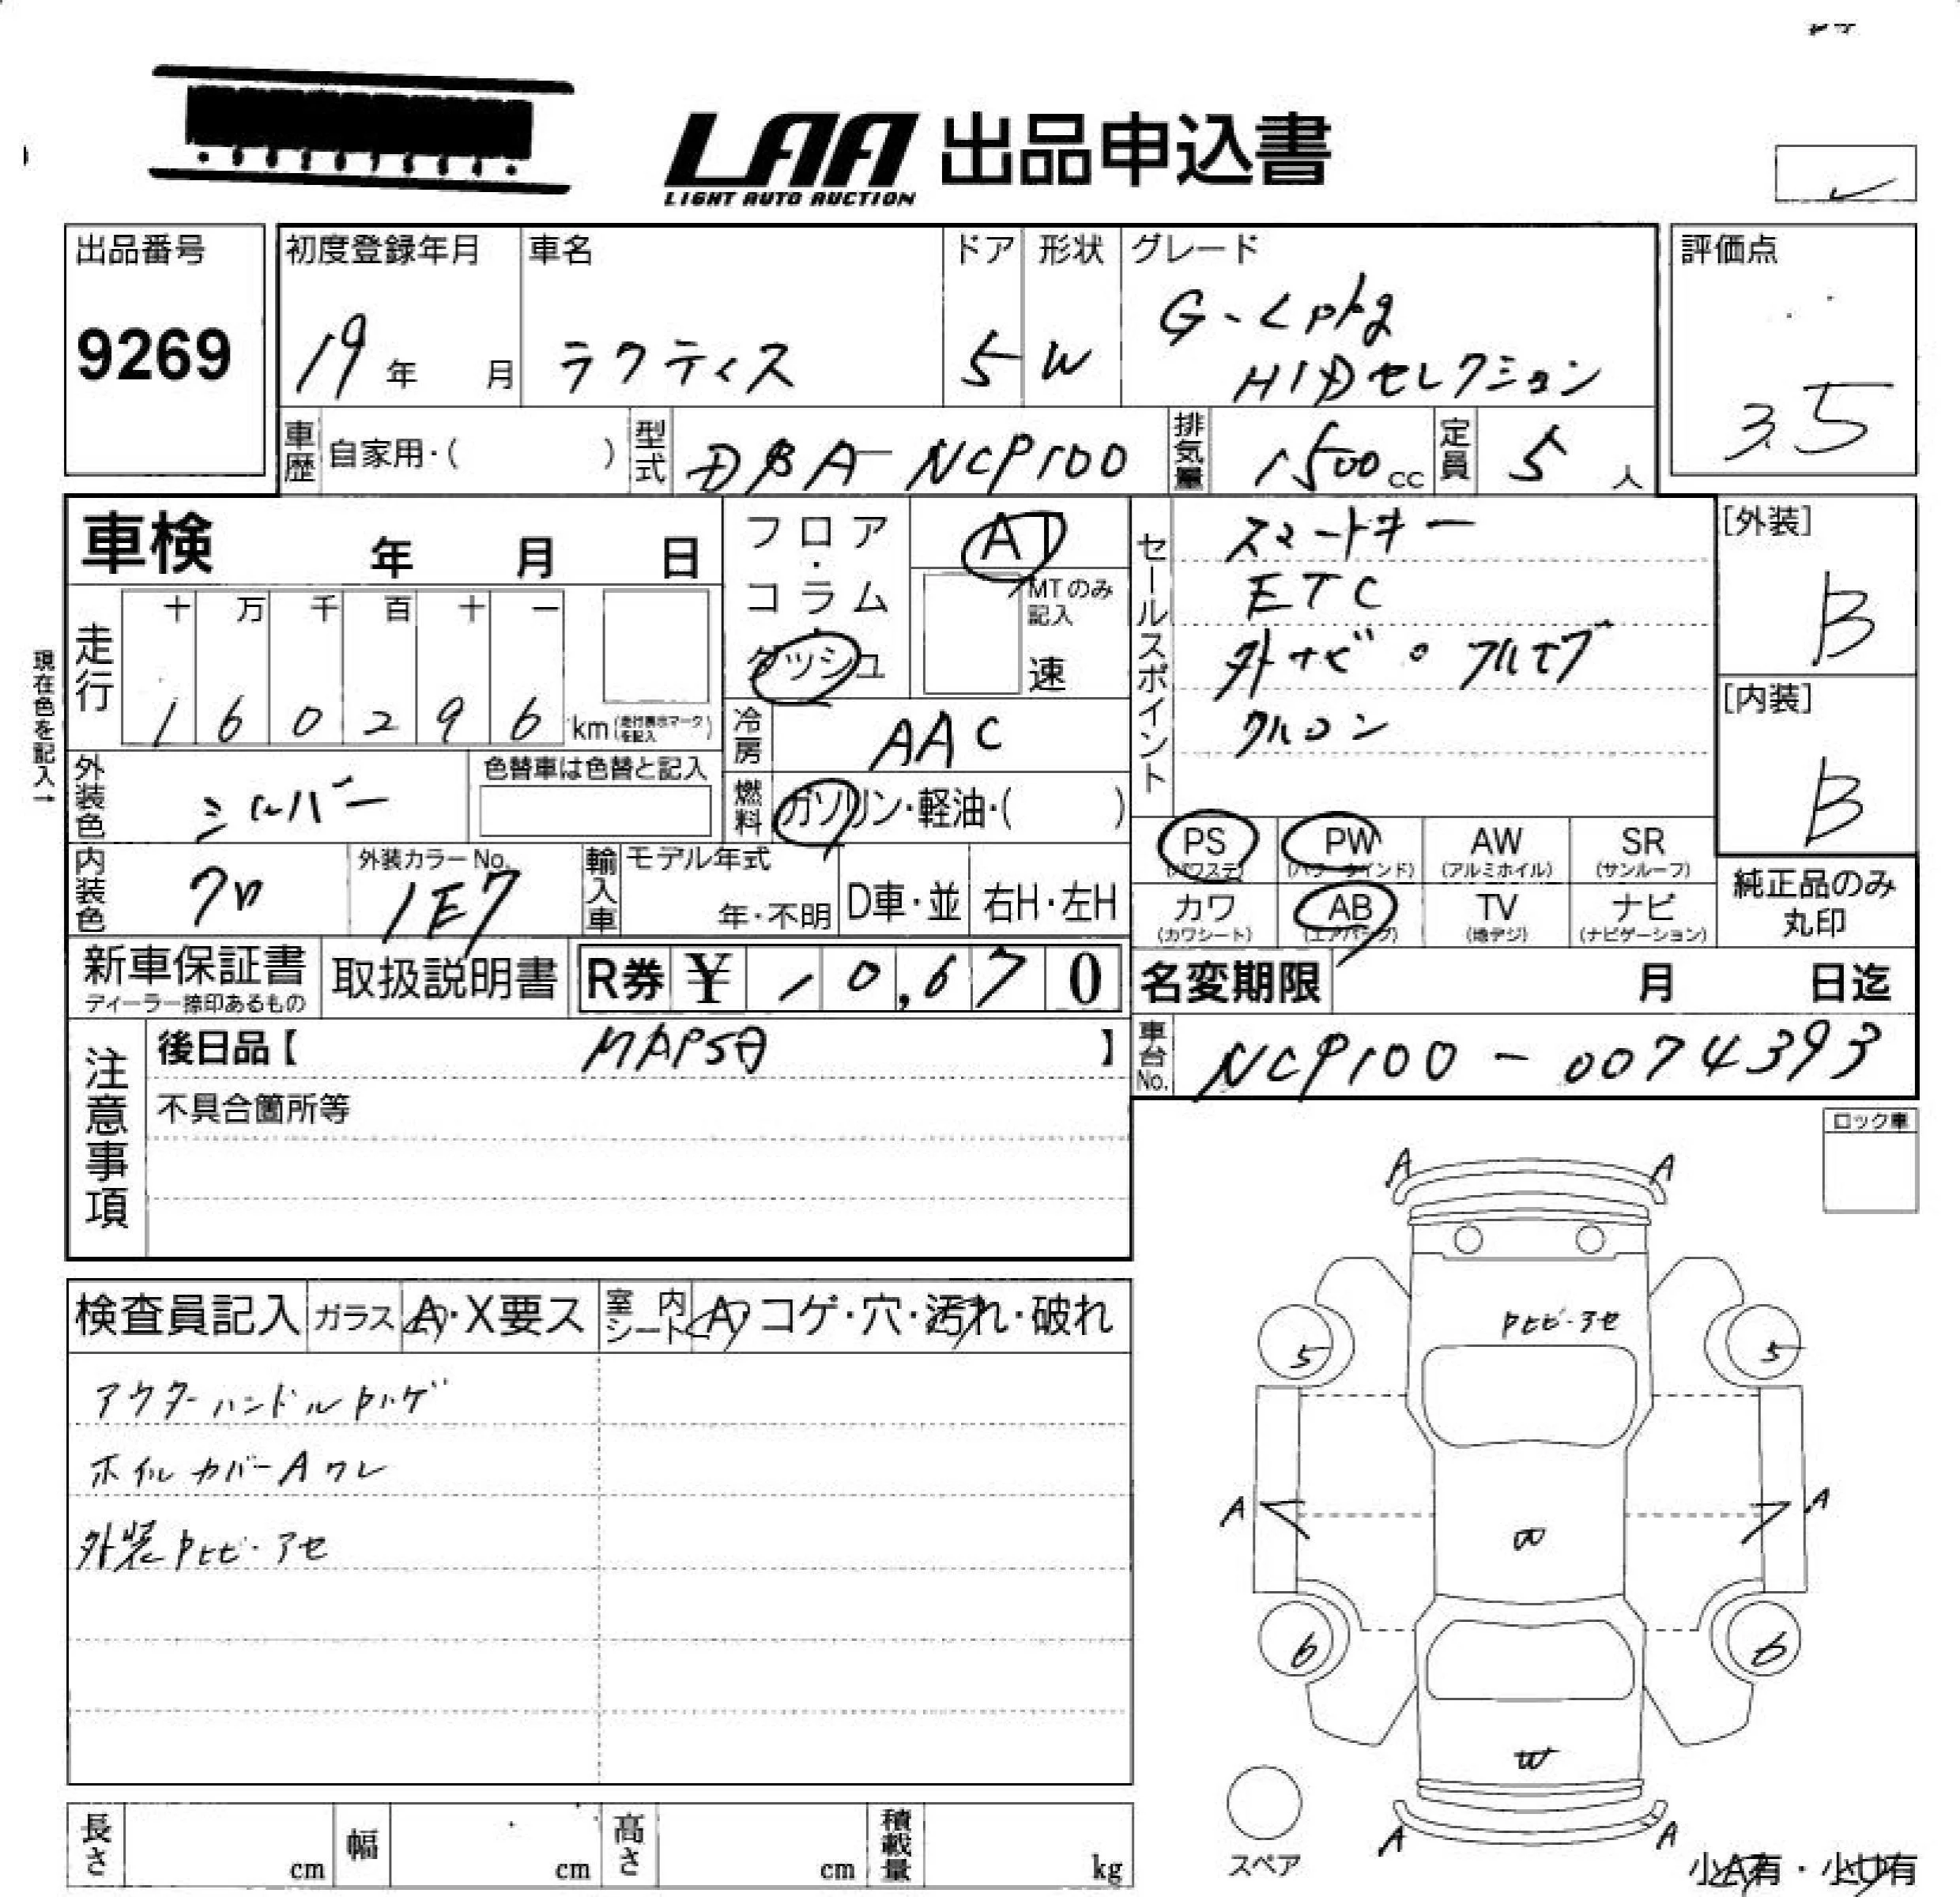 LAA 出品申込書
LIGHT AUTO AUCTION
出品番号
9269
初度登録年月
19年 月
車名
ラクティス
ドア
5
形状
W
グレード
G-Lpkg
HIDセレクション
評価点
3.5
車歴 自家用・( )
型式 DBA-NCP100
排気量 1500cc
定員 5人
車検 年 月 日
フロア・コラム・ダッシュ
AT
MTのみ記入
速
現在色を記入→
走行
十 万 千 百 十 一
1 6 0 2 9 6 km(走行表示マークを記入)
冷房 AAC
燃料 ガソリン・軽油・( )
外装色 シルバー
色替車は色替と記入
内装色 クロ
外装カラーNo.
1E7
輸入車
モデル年式
年・不明
D車・並
右H・左H
セールスポイント
スマートキー
ETC
外ナビ・フルセグ
クルコン
[外装]
B
[内装]
B
PS (パワステ)
PW (パワーウインド)
AW (アルミホイル)
SR (サンルーフ)
カワ (カワシート)
AB (エアバック)
TV (地デジ)
ナビ (ナビゲーション)
純正品のみ丸印
新車保証書
ディーラー捺印あるもの
取扱説明書
R券 ¥ 10,670
名変期限 月 日迄
注意事項
後日品【 】
不具合箇所等
車台No. NCP100-0074393
ロック車
検査員記入
ガラス A・X要ス
室内シート A・コゲ・穴・汚れ・破れ
アウターハンドルPハゲ
ホイルカバーAワレ
外装Pヒビ・アセ
A A
Pヒビ・アセ
5 5
A A
6 6
W
A A
スペア
小A有・小U有
長さ cm
幅 cm
高さ cm
積載量 kg